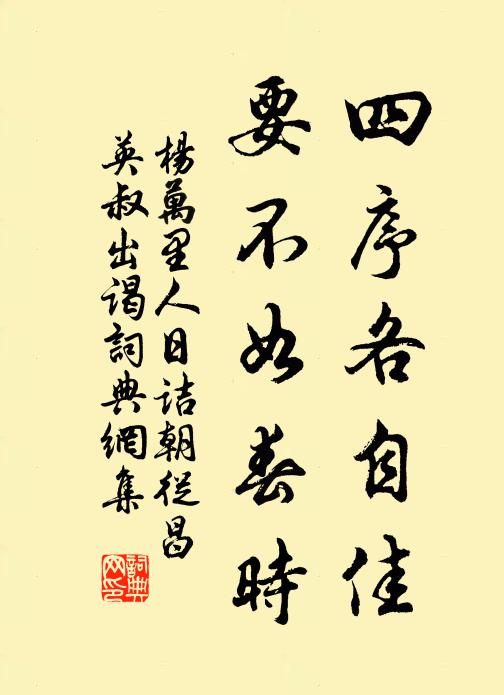 四序各自佳
要不如春時
楊萬里人日詰朝從昌
英叔出謁詞典網集
詞典
网印